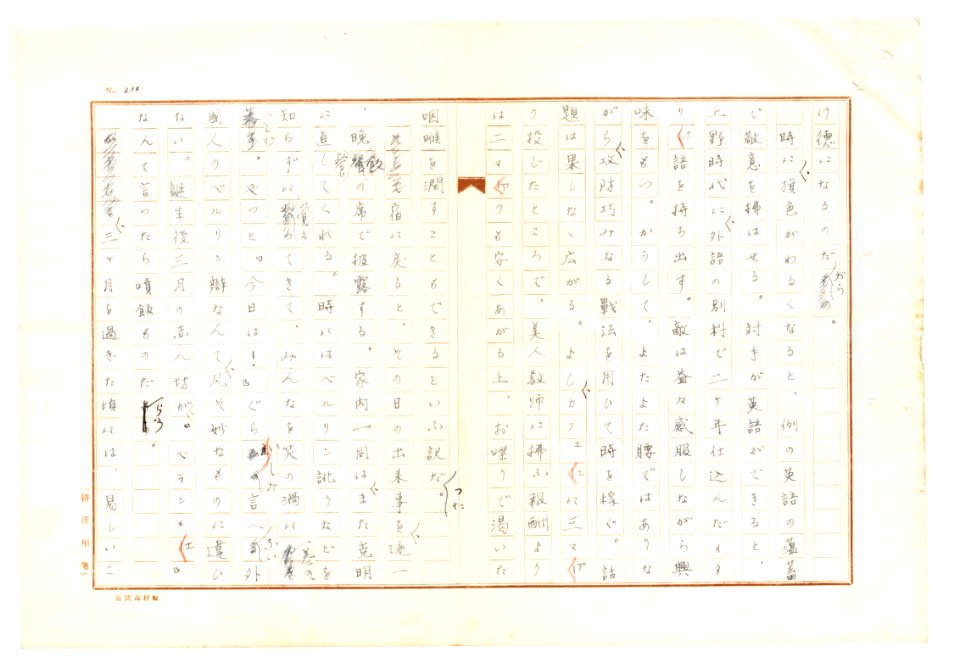 No. 210
け德になるのだから。
時に旗色がわるくなると、例の英語の薀蓄
で敵意を掃はせる。対手が英語ができると、
上野時代に外語の別科で二ケ年仕込んだイタ
り語を持ち出す。敵は益々感服しながら興
味をもつ。かうして、よたよた腰ではありな
がら攻防巧みなる戰法を用ひて時を稼ぐ。話
題は果しなく広がる。よしカフェに三マ
り投じたところで、美人教師に掃ふ報酬より
は二マ も安くあがる上、お喋りで渇いた
咽喉を潤すこともできるといふ訳だつた。
宿に戻ると、その日の出来事を逐一
晩餐の席で披露する。家内一同はまた克明
に直してくれる。時にはベルリン訛りなどを
知らずに てきて、みんなを笑の渦に
。やつと『今日は!』ぐら の言へ 外
国人のベルリン辯なんて凡そ妙なものに違ひ
ない。誕生後三月の赤ん坊が『ペラン 』
なんて言つたら噴飯ものだらう。
三ケ月も過ぎた頃には、易しいこ